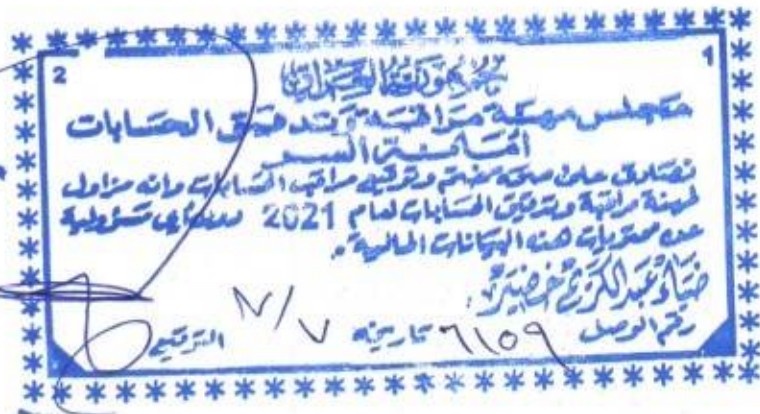 2
1
جمهورية العراق
مجلس مهنة مراقبة وتدقيق الحسابات
أمانة السر
نصادق على صحة ختم وتوقيع مراقب الحسابات وانه مزاول
لمهنة مراقبة وتدقيق الحسابات لعام 2021 دون أي مسؤولية
عن محتويات هذه البيانات المالية.
ضياء عبد الكريم خضير
رقم الوصل ٦١٥٩ تاريخه ٧/٧ التوقيع